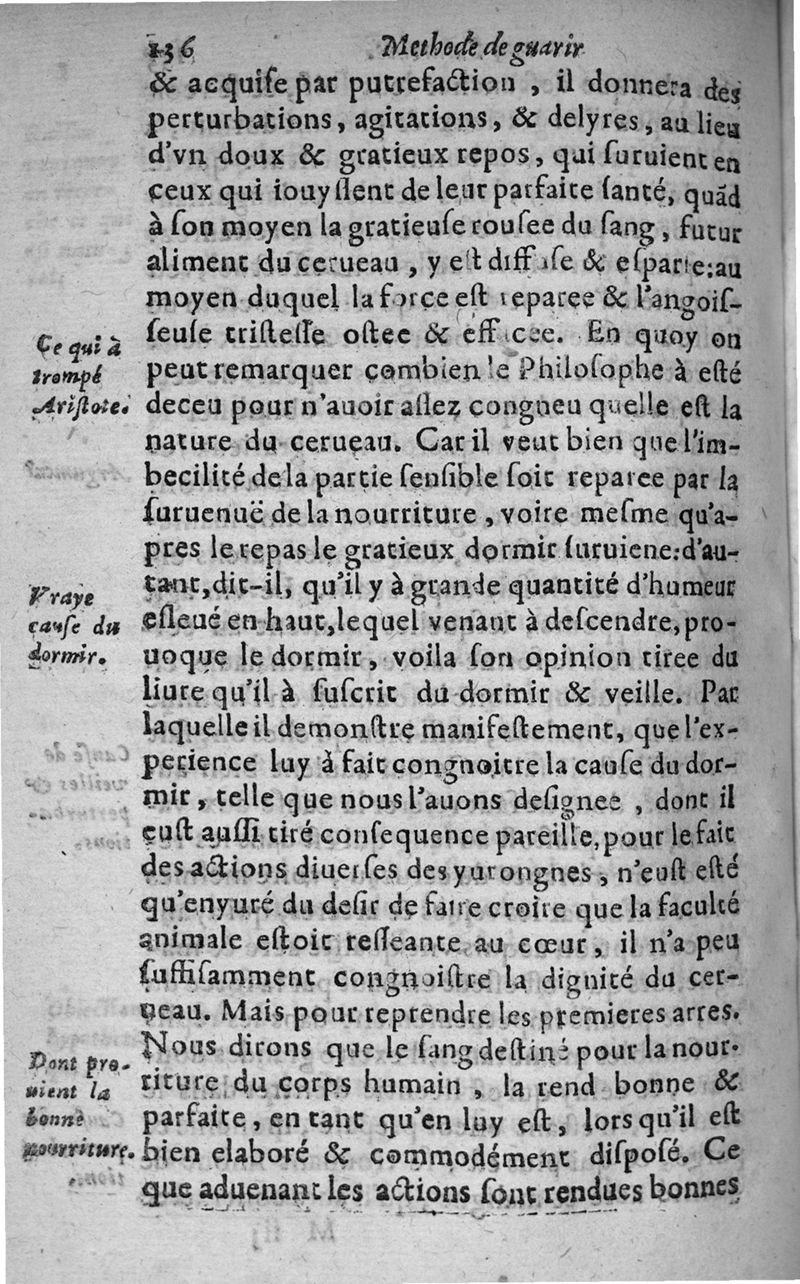 136 Methode de guarir
& acquiſe par putrefaction , il donnera des
perturbations, agitations, & delyres, au lieu
d'vn doux & gratieux repos, qui ſuruient en
ceux qui iouyſſent de leur parfaite ſanté, quãd
à ſon moyen la gratieuſe rouſee du ſang, futur
aliment du cerueau , y eſt diffuſe & eſparſe: au
moyen duquel la force eſt reparee & l'angoiſ-
ſeuſe triſteſſe oſtee & effacee. En quoy on
Ce qui à
trompé
Ariſtote.
peut remarquer combien le Philoſophe à eſté
deceu pour n'auoir aſſez congneu quelle eſt la
nature du cerueau. Car il veut bien que l'im-
becilité de la partie ſenſible ſoit reparee par la
ſuruenuë de la nourriture , voire meſme qu'a-
pres le repas le gratieux dormir ſuruient: d'au-
Vraye
cauſe du
dormir.
tant, dit-il, qu'il y à grande quantité d'humeur
eſleué en haut, lequel venant à deſcendre, pro-
uoque le dormir, voila ſon opinion tiree du
liure qu'il à ſuſcrit du dormir & veille. Par
laquelle il demonſtre manifeſtement, que l'ex-
perience luy à fait congnoitre la cauſe du dor-
mir , telle que nous l'auons deſignee , dont il
euſt auſſi tiré conſequence pareille, pour le fait
des actions diuerſes des yurongnes , n'euſt eſté
qu'enyuré du deſir de faire croire que la faculté
animale eſtoit reſſeante au cœur, il n'a peu
ſuffiſamment congnoiſtre la dignité du cer-
ueau. Mais pour reprendre les premieres arres.
Dont pro-
uient la
bonne
nourriture.
Nous dirons que le ſang deſtiné pour la nour-
riture du corps humain , la rend bonne &
parfaite, en tant qu'en luy eſt, lors qu'il eſt
bien elaboré & commodément diſpoſé. Ce
que aduenant les actions ſont rendues bonnes